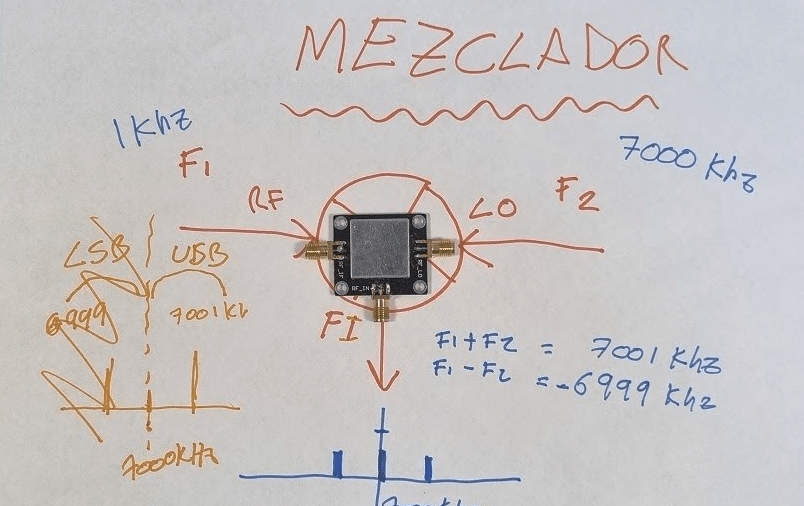 MEZCLADOR
1Khz
7000 Khz
F1
F2
RF
LO
LSB
USB
6999
7001Kh
RF_IN
FI
F1+F2 = 7001 Khz
F1-F2 = -6999 Khz
7000KHz